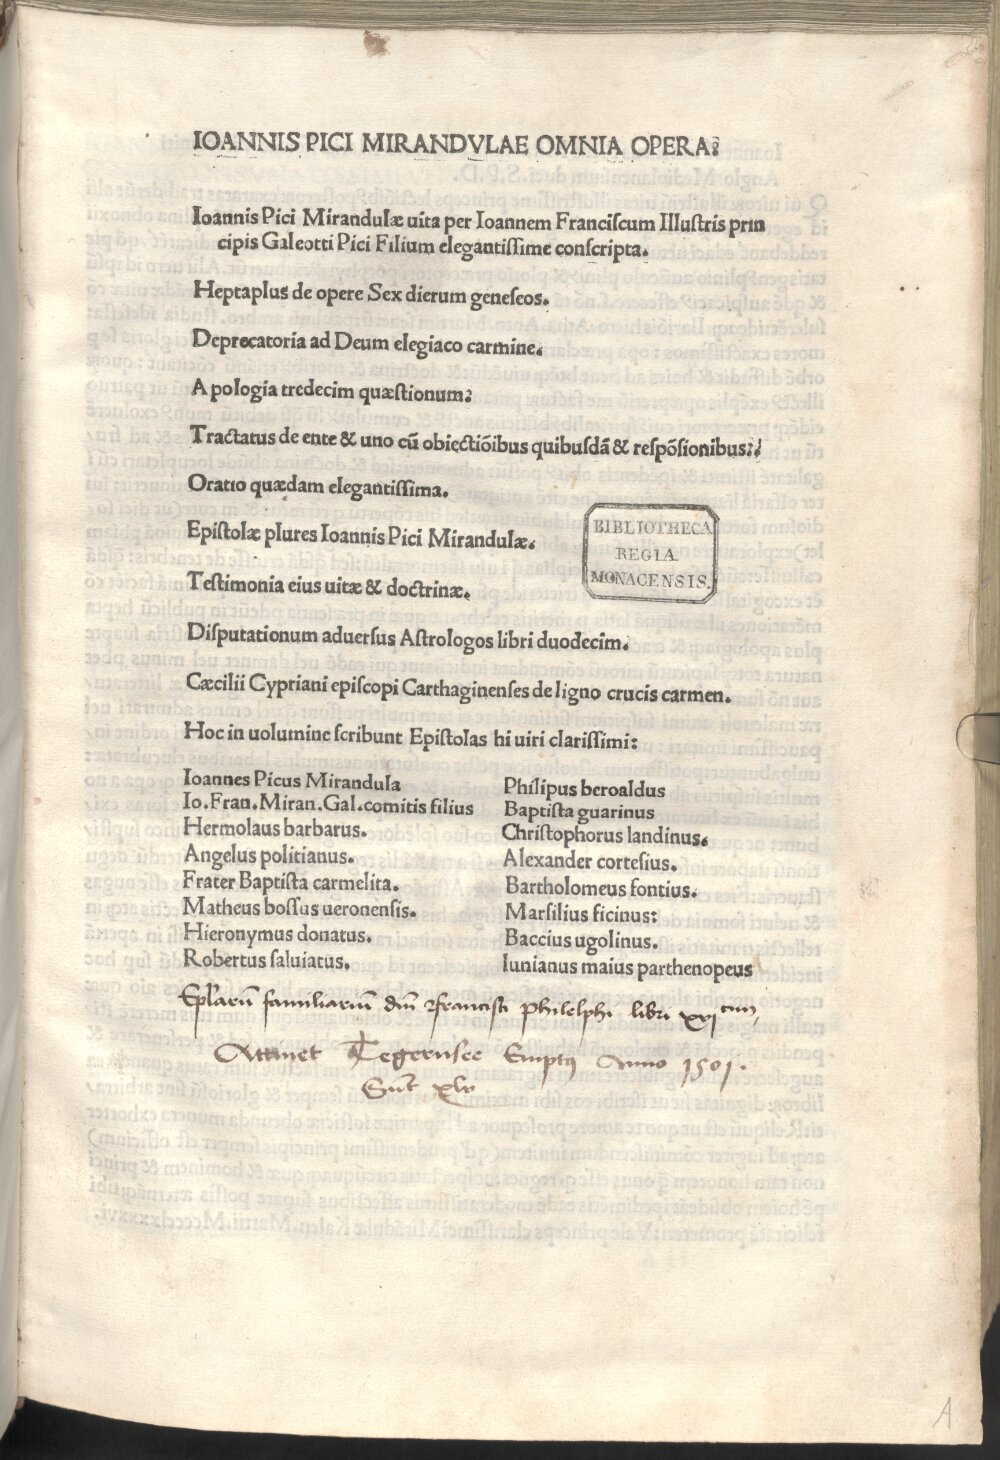 IOANNIS PICI MIRANDVLAE OMNIA OPERA:
Ioannis Pici Mirandulæ uita per Ioannem Franciſcum Illuſtris prin
cipis Galeotti Pici Filium elegantiſſime conſcripta.
Heptaplus de opere Sex dierum geneſeos.
Deprecatoria ad Deum elegiaco carmine.
Apologia tredecim quæſtionum:
Tractatus de ente & uno cū obiectiōibus quibuſdā & reſpōſionibus:
Oratio quædam elegantiſſima.
Epiſtolæ plures Ioannis Pici Mirandulæ.
Teſtimonia eius uitæ & doctrinæ.
Diſputationum aduerſus Aſtrologos libri duodecim.
Cæcilii Cypriani epiſcopi Carthaginenſes de ligno crucis carmen.
Hoc in uolumine ſcribunt Epiſtolas hi uiri clariſſimi:
Ioannes Picus Mirandula
Io.Fran.Miran.Gal.comitis filius
Hermolaus barbarus.
Angelus politianus.
Frater Baptiſta carmelita.
Matheus boſſus ueronenſis.
Hieronymus donatus.
Robertus ſaluiatus.
Philipus beroaldus
Baptiſta guarinus
Chriſtophorus landinus.
Alexander corteſius.
Bartholomeus fontius.
Marſilius ficinus:
Baccius ugolinus.
Iunianus maius parthenopeus
BIBLIOTHECA
REGIA
MONACENSIS.
familiariū Philelphi libri
Attinet Tegernsee Emptus Anno 1501.
A